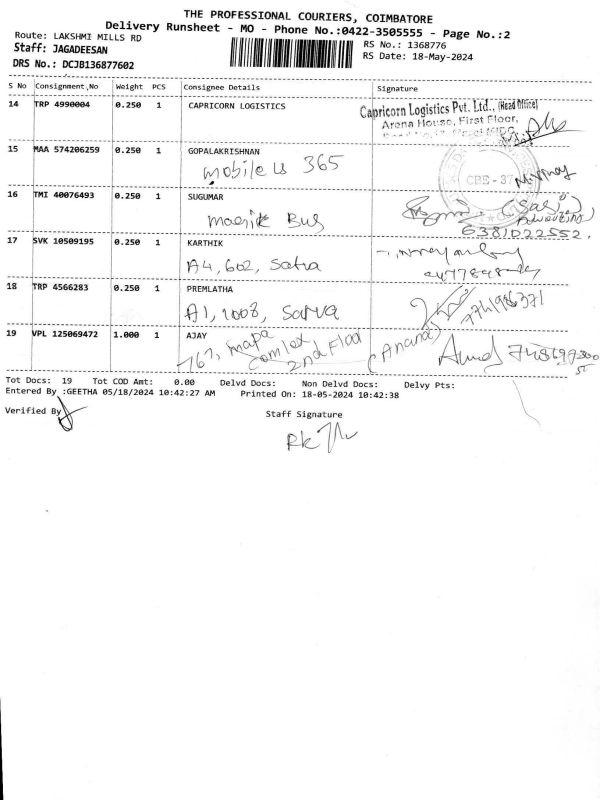 THE PROFESSIONAL COURIERS, COIMBATORE
Delivery Runsheet - MO - Phone No.:0422-3505555 - Page No.:2
Route: LAKSHMI MILLS RD
RS No.: 1368776
Staff: JAGADEESAN
RS Date: 18-May-2024
DRS No.: DCJB136877602
S No Consignment,No Weight PCS Consignee Details Signature
14 TRP 4990004 0.250 1 CAPRICORN LOGISTICS
Capricorn Logistics Pvt. Ltd., (Head Office)
Arena House, First Floor,
15 MAA 574206259 0.250 1 GOPALAKRISHNAN
mobile us 365
CBE - 37
16 TMI 40076493 0.250 1 SUGUMAR
magik Bus
17 SVK 10509195 0.250 1 KARTHIK
A4, 602,
18 TRP 4566283 0.250 1 PREMLATHA
A1, 1008, Sarva
19 VPL 125069472 1.000 1 AJAY
767, mapa
comlex
2nd Floor
(Anand)
Tot Docs: 19 Tot COD Amt: 0.00 Delvd Docs: Non Delvd Docs: Delvy Pts:
Entered By :GEETHA 05/18/2024 10:42:27 AM Printed On: 18-05-2024 10:42:38
Verified By
Staff Signature